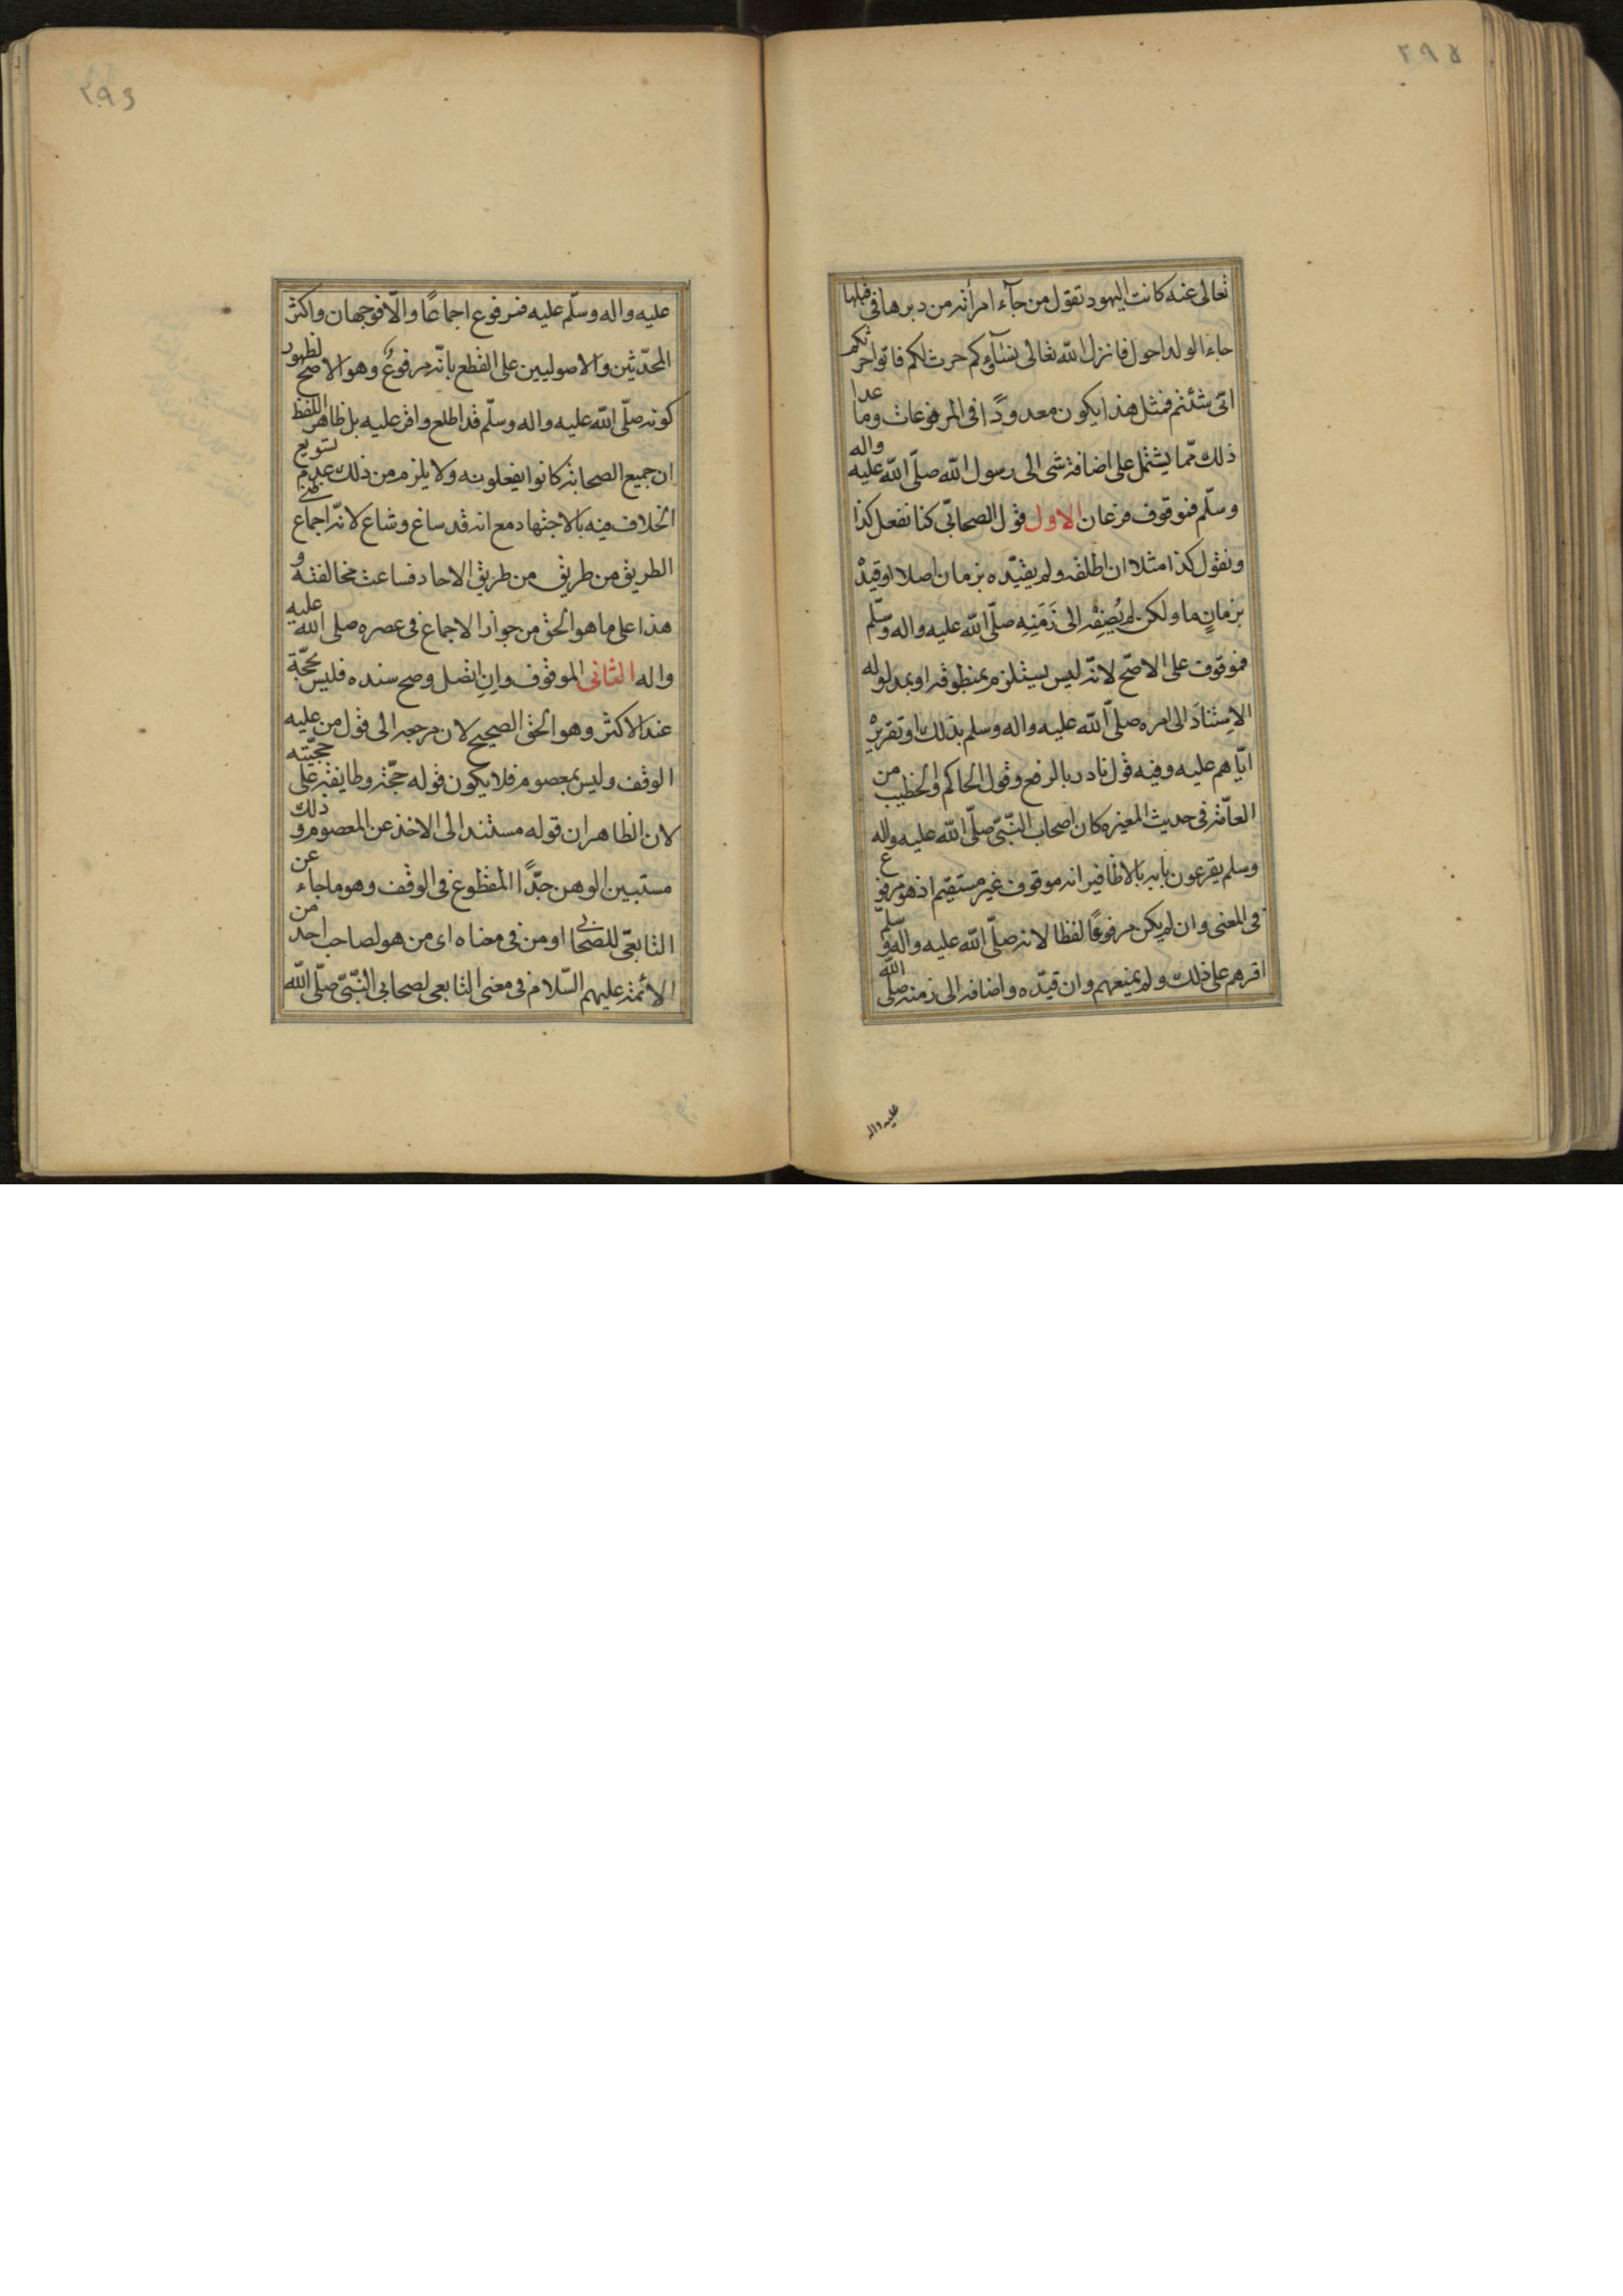 ٢٩٥
تعالى عنه كانت اليهود تقول من جآء امرأته من دبرها فى قبلها
جاء الولد احول فانزل الله تعالى نسآؤكم حرث لكم فاتوا حرثكم
انّى شئتم فمثل هذا يكون معدودًا فى المرفوعات وما عدا
ذلك ممّا يشتمل على اضافة شى الى رسول الله صلّى الله عليه واله
وسلّم فموقوف فرعان الاول قول الصحابّى كنا نفعل كذا
ونقول كذا مثلا ان اطلقه ولم يقيّده بزمان اصلا او قيده
بزمانٍ ما ولكن لم يُضِفْه الى زَمَنِهِ صلّى الله عليه واله وسلّم
فموقوف على الاصّح لانّه ليس يستلزم بمنطوقه او بمدلوله
الاِستنادَ الى امره صلّى الله عليه واله وسلم بذلك او تقريره
ايّاهم عليه وفيه قول نادر بالرفع وقول الحاكم والخطيب من
العامّة فى حديث المغيره كان اصحاب النّبىّ صلّى الله عليه واله
وسلم يقرعون بابه بالاظافير انه موقوف غير مستقيم اذ هو مرفوع
فى المعنى وان لم يكن مرفوعًا لفظا لانه صلّى الله عليه واله وسلم
اقرهم على ذلك ولم يمنعهم وان قيّده واضافه الى زمنه صلى الله
عليه واله
٢٩٦
عليه واله وسلّم عليه فمرفوع اجماعًا والّا فوجهان واكثر
المحدّثين والاصوليين على القطع بانّه مرفوعٌ وهو الاصح لظهور
كونه صلّى الله عليه واله وسلّم قد اطلع واقر عليه بل ظاهر اللفظ
ان جميع الصحابة كانوا يفعلونه ولا يلزم من ذلك عدم تسويغ
الخلاف فيه بالاجتهاد مع انه قد ساغ وشاع لانّه اجماع ظنى
الطريق من طريق من طريق الاحاد فساغت مخالفته و
هذا على ما هو الحق من جواز الاجماع فى عصره صلى الله عليه
واله الثانى الموقوف وانِ اتصل وصح سنده فليس بحجّة
عند الاكثر وهو الحق الصحيح لان مرجعه الى قول من عليه
الوقف وليس بمعصوم فلا يكون قوله حجّة وطايفة على حجيّته
لان الظاهر ان قوله مستند الى الاخذ عن المعصوم و ذلك
مستبين الوهن جدًّا المقطوع فى الوقف وهو ما جاء عن
التابعّى للصحابى او من فى معناه اى من هو لصاحب احد من
الائمة عليهم السّلام فى معنى التابعى لصحابى النّبىّ صلّى الله